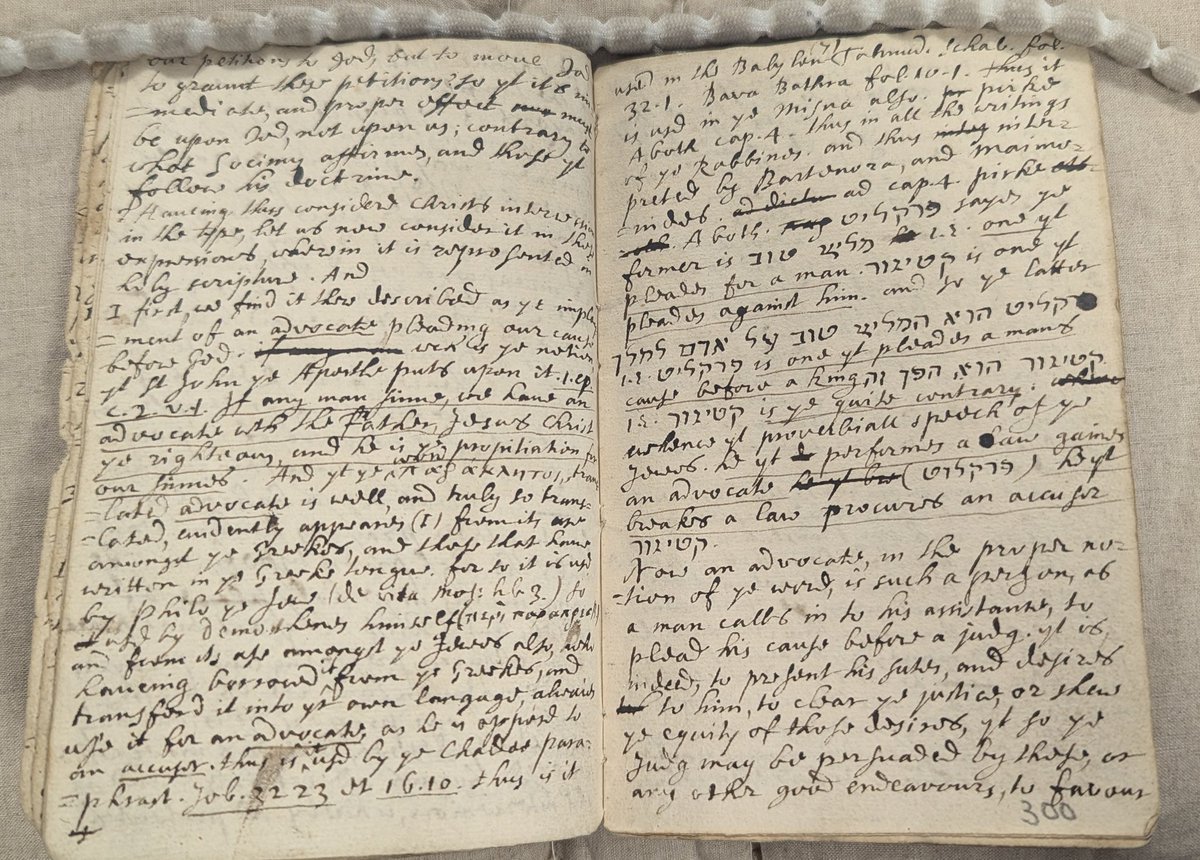 our petitions to God, but to move God
to graunt these petitions? so yt it's im
=mediate, and proper effect must
be upon God, not upon us; contrary to
what Socinus affirmes, and those yt
follow his doctrine.
Haveing thus considerd Christs intercession
in the type, let us now consider it in those
expressions, wherein it is represented in
holy scripture. And
1 first, we find it there described as ye imploy
=ment of an advocate pleading our cause
before God. wch is ye notion
yt St John ye Apostle puts upon it. 1. ep.
c. 2. v. 1. If any man sinne, we have an
advocate wth the Father, Jesus Christ
ye righteous, and he is ye propitiation for
our sinnes. And yt ye word παράκλητος, trans
=lated advocate is well, and truly so trans-
=lated, evidently appeares (1) from its use
amongst ye Greekes, and those that have
written in ye Greeke tongue. for so it is usd
by Philo ye Jew (de vita Mos: lib 3.) so
usd by Demosthenes himself
and from its use amongst ye Jewes also, who
haveing borrowed it from ye Greekes, and
transferd it into yr own langage, always
use it for an advocate, as he is opposed to
an accuser. thus is usd by ye Chaldee para-
=phrast. Job. 32 23 et 16. 10. thus is it
usd in the Babylon Talmud. Schab. fol.
32. 1. Bava Bathra fol. 10. 1. thus it
is usd in ye Misna also. pirke
Aboth cap. 4. thus in all the writings
of ye Rabbines. and thus inter-
preted by Bartenora, and Maimo-
=nides. ad cap. 4. pirke
Aboth. פרקליט sayes ye
former is מליץ טוב i.e. one yt
pleades for a man. קטיגור is one yt
pleades against him. and so ye latter
פרקליט הוא המליץ טוב על אדם למלך
i.e. פרקליט is one yt pleades a mans
cause before a king קטיגור הוא הפך זה
i.e. קטיגור is ye quite contrary.
whence yt proverbiall speech of ye
Jewes. he yt performes a law gaines
an advocate (פרקליט) he yt
breakes a law procures an accuser
קטיגור.
Now an advocate, in the proper no-
=tion of ye word, is such a person, as
a man calls in to his assistante, to
plead his cause before a judg. yt is,
indeed, to present his sutes, and desires
to him, to clear ye justice, or shew
ye equity of those desires, yt so ye
Judg may be persuaded by these, or
any other good endeavours, to favour
300